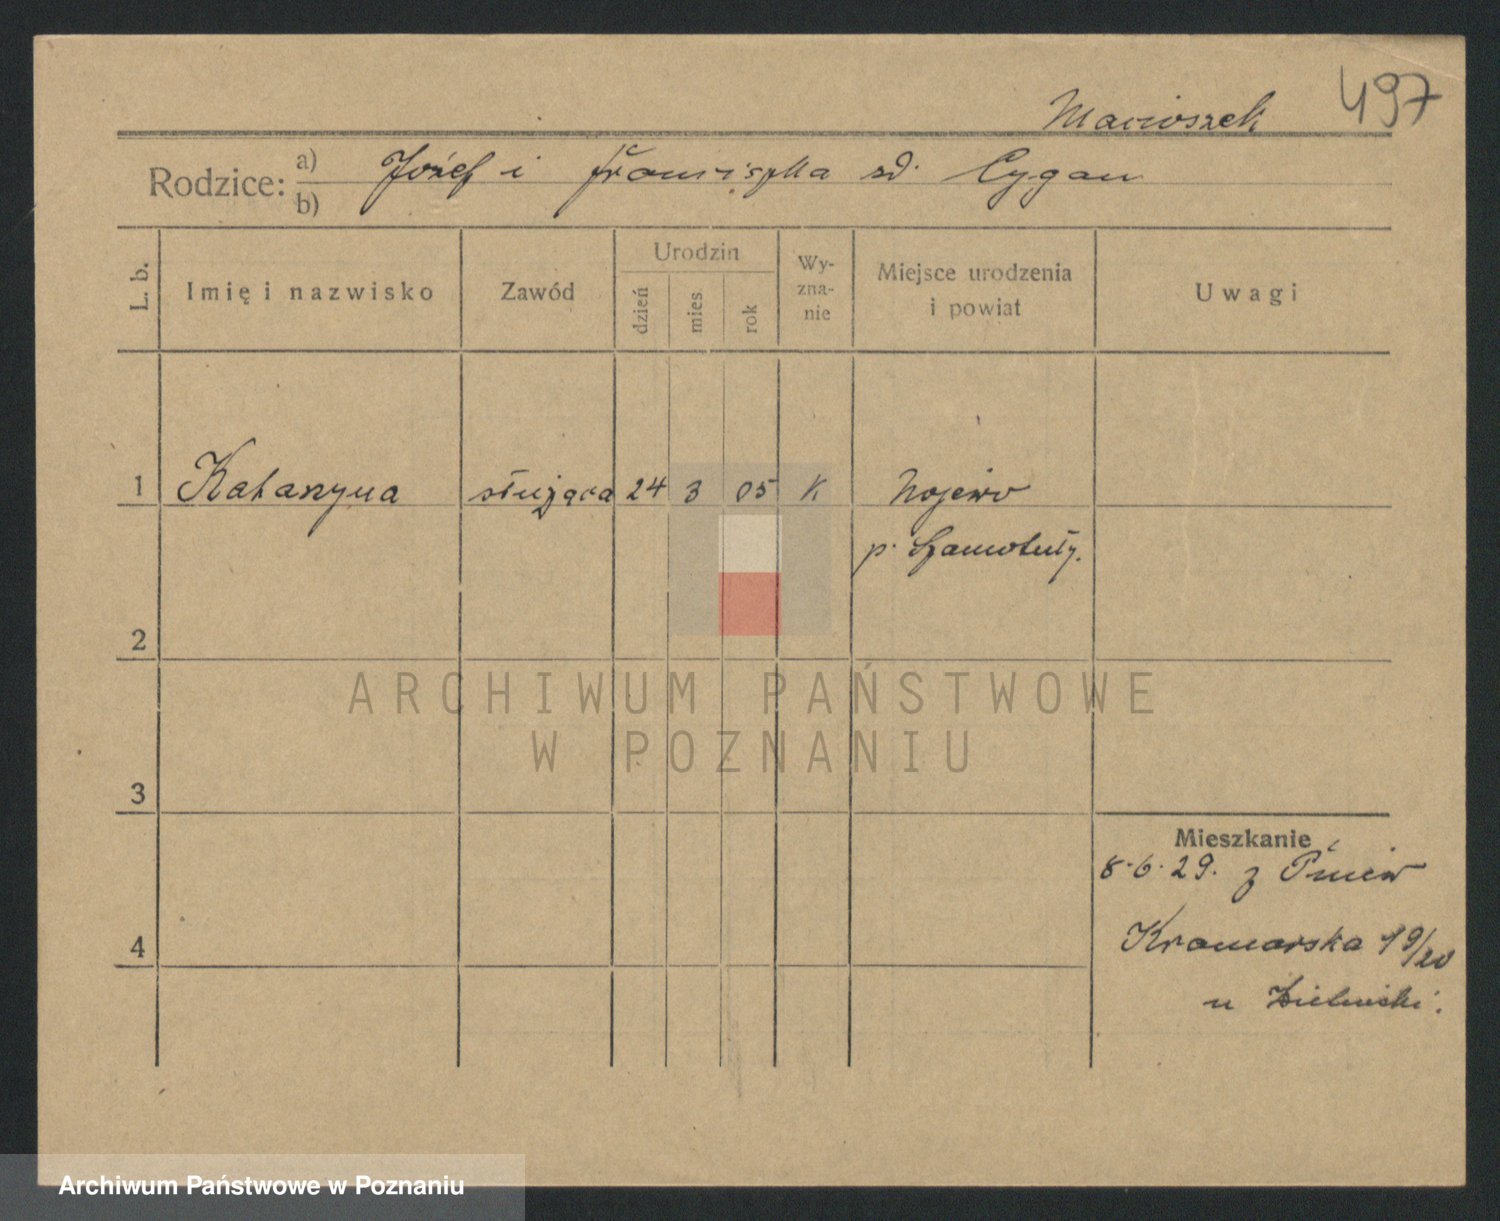 497
Macioszek
Rodzice: a) Józef i Franciszka zd. Cygan
b)
L. b. Imię i nazwisko Zawód Urodzin dzień mies rok Wyzna-nie Miejsce urodzenia i powiat Uwagi
1 Katarzyna służąca 24 3 05 K Nojewo
p. Szamotuły.
2
ARCHIWUM PAŃSTWOWE
W POZNANIU
3
Mieszkanie
8.6.29. z Pniew
4 Kramarska 19/20
u
Archiwum Państwowe w Poznaniu